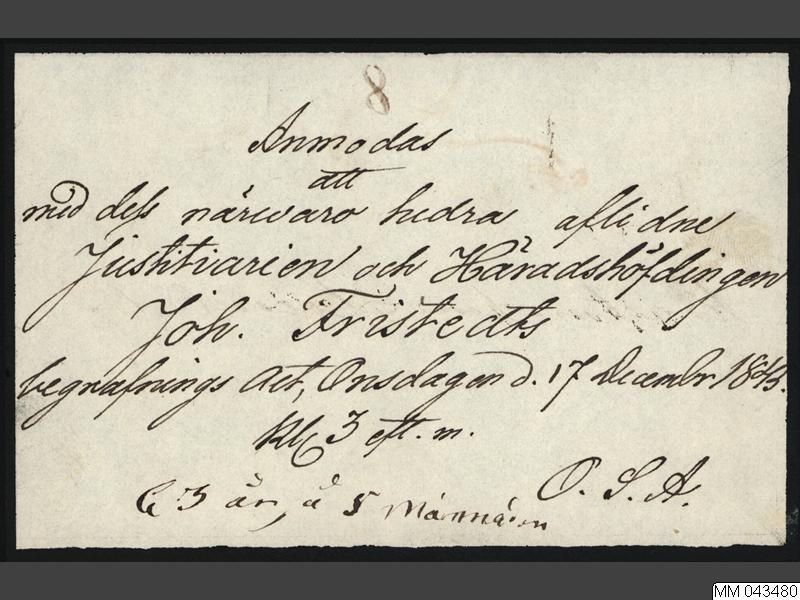 8
Anmodas
att
med dess närwaro hedra aflidne
Justitiarien och Häradshöfdingen
Joh. Fristedts
begrafnings Act, Onsdagen d. 17 Decembr. 1845.
Kl. 3 eft. m.
O. S. A.
63 år, å 5 Månnáden
MM 043480